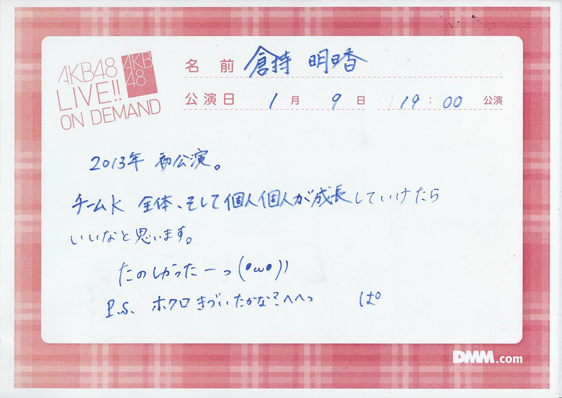 AKB48
LIVE!!
ON DEMAND
AKB
48
名 前 倉持 明日香
公演日 1月 9日 19:00 公演
2013年 初公演。
チームK 全体、そして個人個人が成長していけたら
いいなと思います。
たのしかったーっ(•ω•))
P.S. ホクロきづいたかな?へへっ ぱ
DMM.com